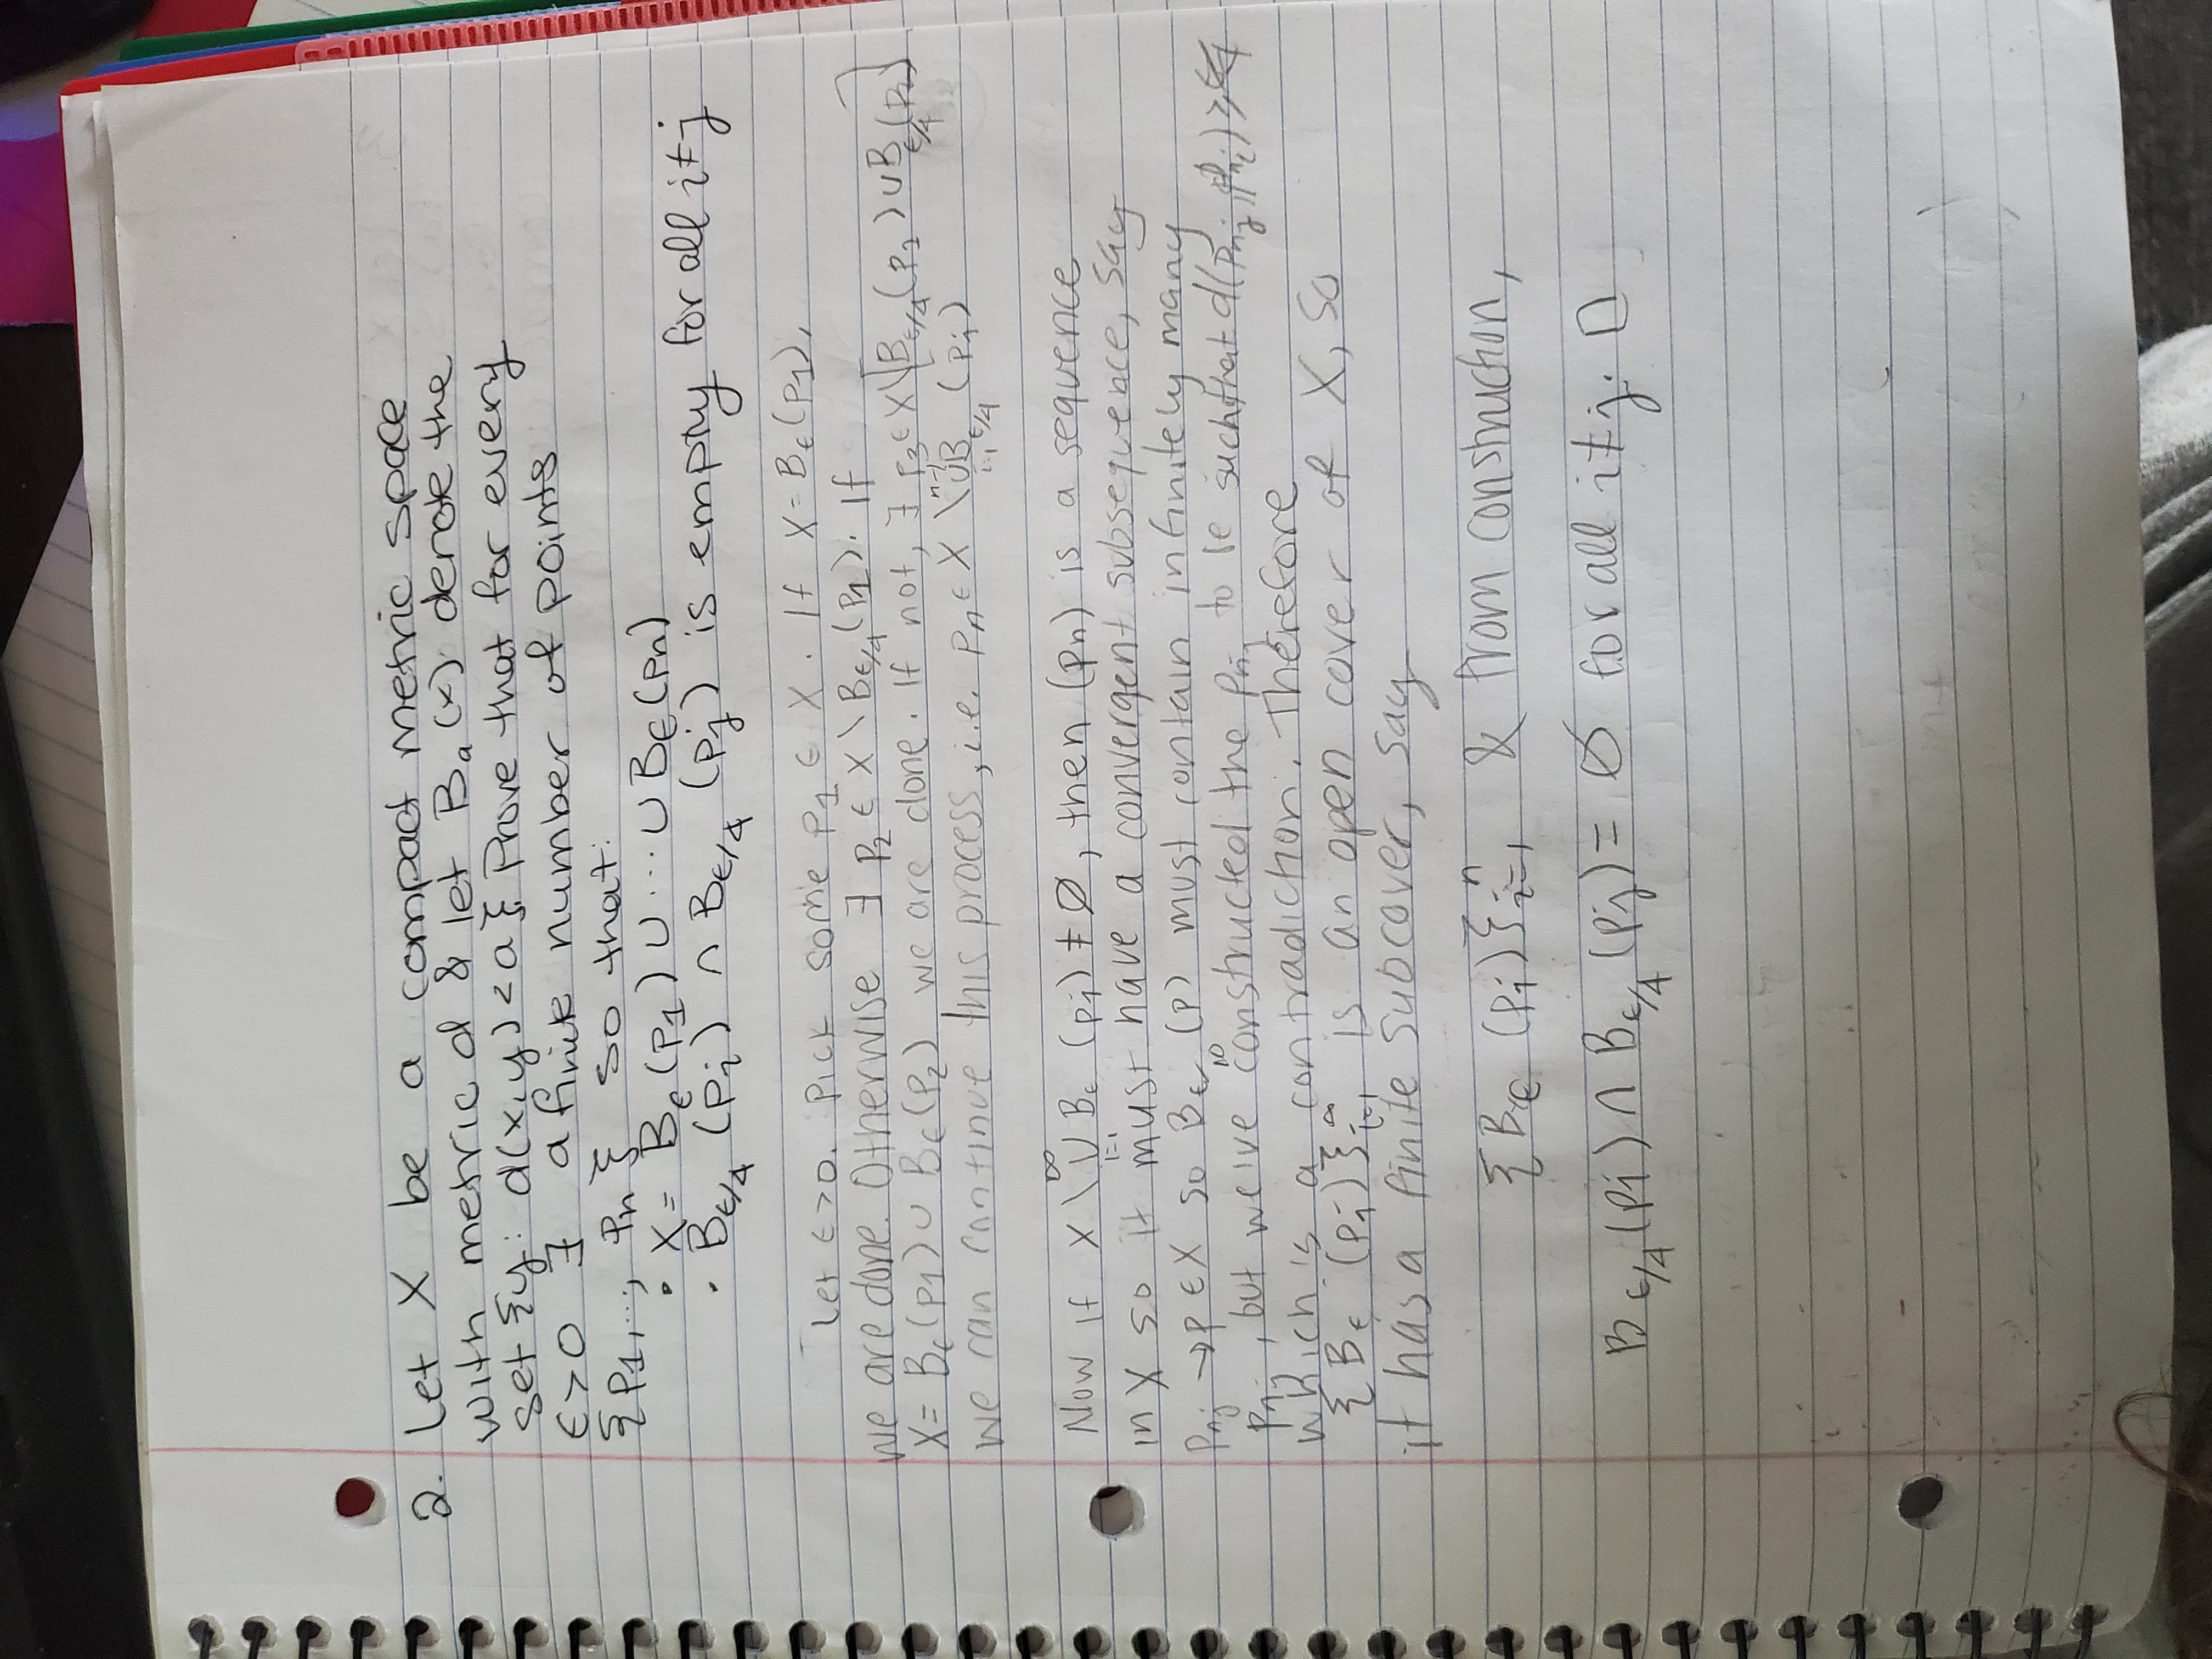 2. Let X be a compact metric space
with metric d & let Bₐ(x) denote the
set {y: d(x,y)<a}. Prove that for every
ϵ>0 ∃ a finite number of points
{p₁,..., pₙ} so that:
• X = B_ϵ(p₁) ∪ ... ∪ B_ϵ(pₙ)
• B_ϵ/4 (pᵢ) ∩ B_ϵ/4 (pⱼ) is empty for all i≠j
Let ϵ>0. Pick some p₁ ∈ X. If X=B_ϵ(p₁),
we are done. Otherwise ∃ p₂ ∈ X \ B_ϵ/4(p₁). If
X= B_ϵ(p₁) ∪ B_ϵ(p₂) we are done. If not, ∃ p₃ ∈ X\[B_ϵ/4(p₁) ∪ B_ϵ/4(p₂)]
we can continue this process, i.e. pₙ ∈ X \ ∪_{i=1}^{n-1} B_ϵ/4 (pᵢ)
Now if X \ ∪_{i=1}^∞ B_ϵ (pᵢ) ≠ ∅, then (pₙ) is a sequence
in X so it must have a convergent subsequence, say
p_nⱼ → p ∈ X so B_ϵ/10 (p) must contain infinitely many
p_nⱼ, but we've constructed the p_nⱼ to be such that d(p_nⱼ, p_nᵢ) ≥ ϵ/4
which is a contradiction. Therefore
{B_ϵ (pᵢ)}_{i=1}^∞ is an open cover of X, so
it has a finite subcover, say
{B_ϵ (pᵢ)}_{i=1}^n & from construction,
B_ϵ/4(pᵢ) ∩ B_ϵ/4 (pⱼ) = ∅ for all i≠j. □